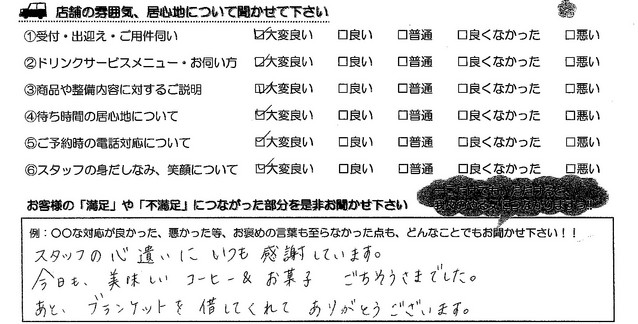 店舗の雰囲気、居心地について聞かせて下さい
①受付・出迎え・ご用件伺い ☑大変良い □良い □普通 □良くなかった □悪い
②ドリンクサービスメニュー・お伺い方 ☑大変良い □良い □普通 □良くなかった □悪い
③商品や整備内容に対するご説明 ☑大変良い □良い □普通 □良くなかった □悪い
④待ち時間の居心地について ☑大変良い □良い □普通 □良くなかった □悪い
⑤ご予約時の電話対応について ☑大変良い □良い □普通 □良くなかった □悪い
⑥スタッフの身だしなみ、笑顔について ☑大変良い □良い □普通 □良くなかった □悪い
お客様の「満足」や「不満足」につながった部分を是非お聞かせ下さい
例：〇〇な対応が良かった、悪かった等、お褒めの言葉も至らなかった点も、どんなことでもお聞かせ下さい！！
スタッフの心遣いにいつも感謝しています。
今日も、美味しいコーヒー&お菓子 ごちそうさまでした。
あと、ブランケットを借してくれて ありがとうございます。